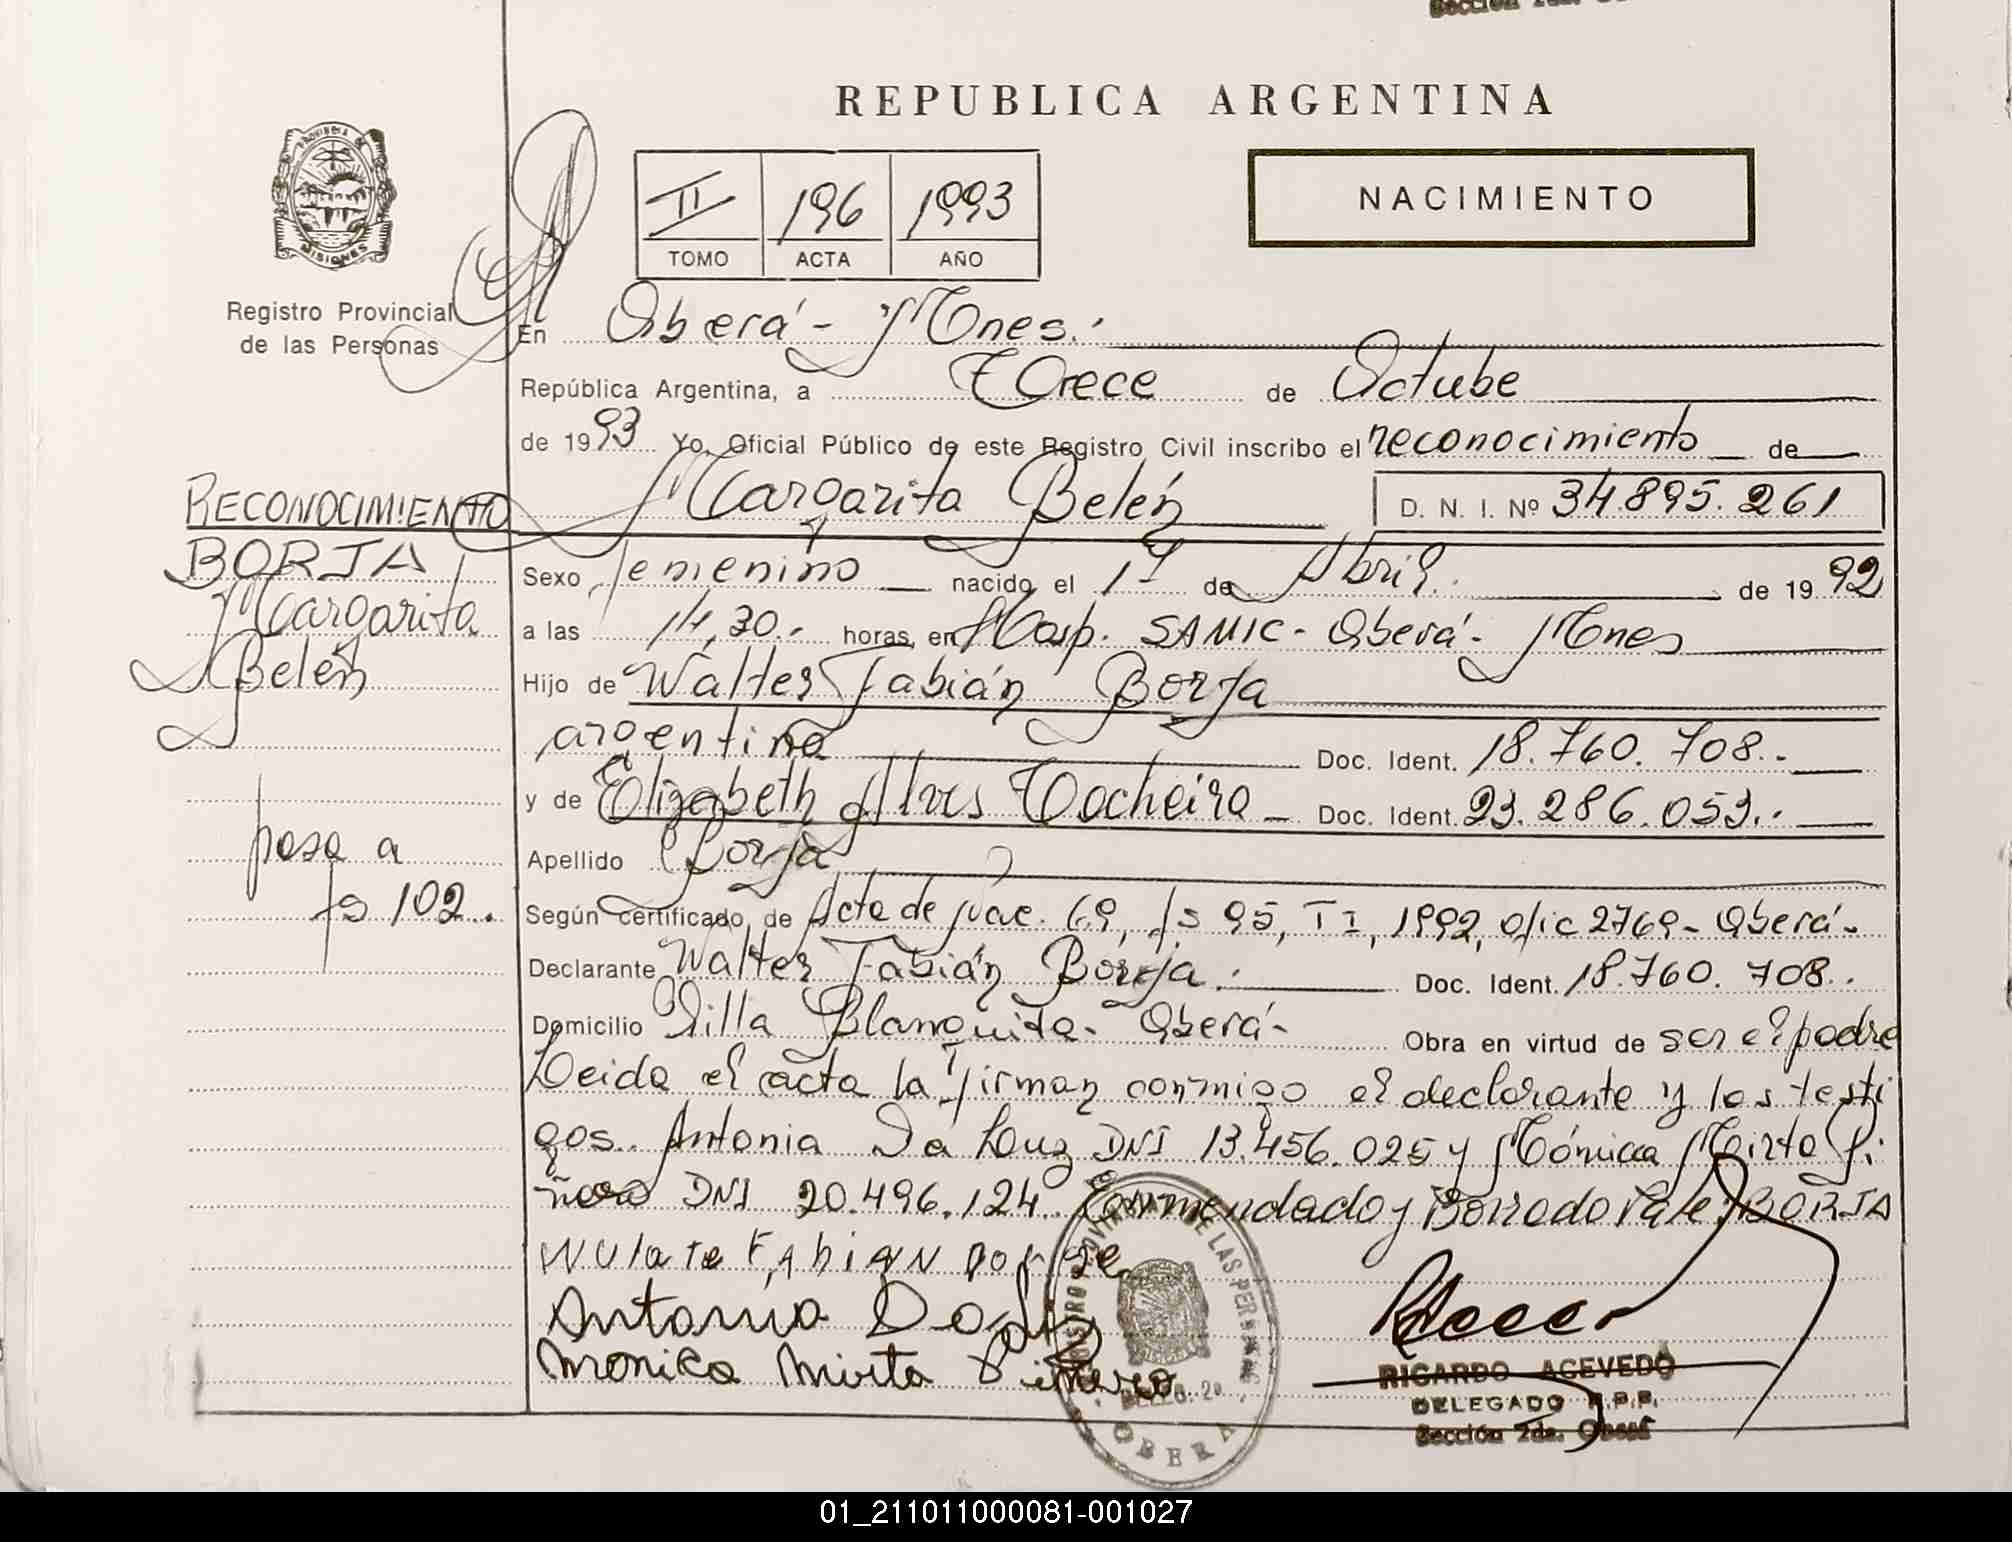 Sección 2da.
REPUBLICA ARGENTINA
PROVINCIA DE
MISIONES
Registro Provincial
de las Personas
II 196 1993
TOMO ACTA AÑO
NACIMIENTO
En Oberá - Mnes.
República Argentina, a Trece de Octube
de 1993 Yo, Oficial Público de este Registro Civil inscribo el reconocimiento de
Margarita Belén D. N. I. Nº 34.895.261
RECONOCIMIENTO
BORJA
Margarita
Belén
pasa a
fs 102.
Sexo femenino nacido el 17 de Abril de 1992
a las 14,30. horas, en Hosp. SAMIC - Oberá - Mnes
Hijo de Walter Fabián Borja
argentino Doc. Ident. 18.760.708.-
y de Elizabeth Alves Tocheiro Doc. Ident. 23.286.053.-
Apellido Borja
Según certificado de Acta de Nac. 69, fs 95, T I, 1992, ofic 2769 - Oberá -
Declarante Walter Fabián Borja. Doc. Ident. 18.760.708.
Domicilio Villa Blanquita - Oberá - Obra en virtud de ser el padre
Leida el acta la firman conmigo el declarante y los testi
gos. Antonia Da Luz DNI 13.456.025 y Mónica Mirta Pi
ñero DNI 20.496.124. Enmendado y Borrado Vale. BORJA
FABIAN
Antonia Da
Monica Mirta Piñero
REGISTRO PROVINCIAL DE LAS PERSONAS
OBERA
RICARDO ACEVEDO
DELEGADO R.P.P.
Sección 2da. Oberá
01_211011000081-001027